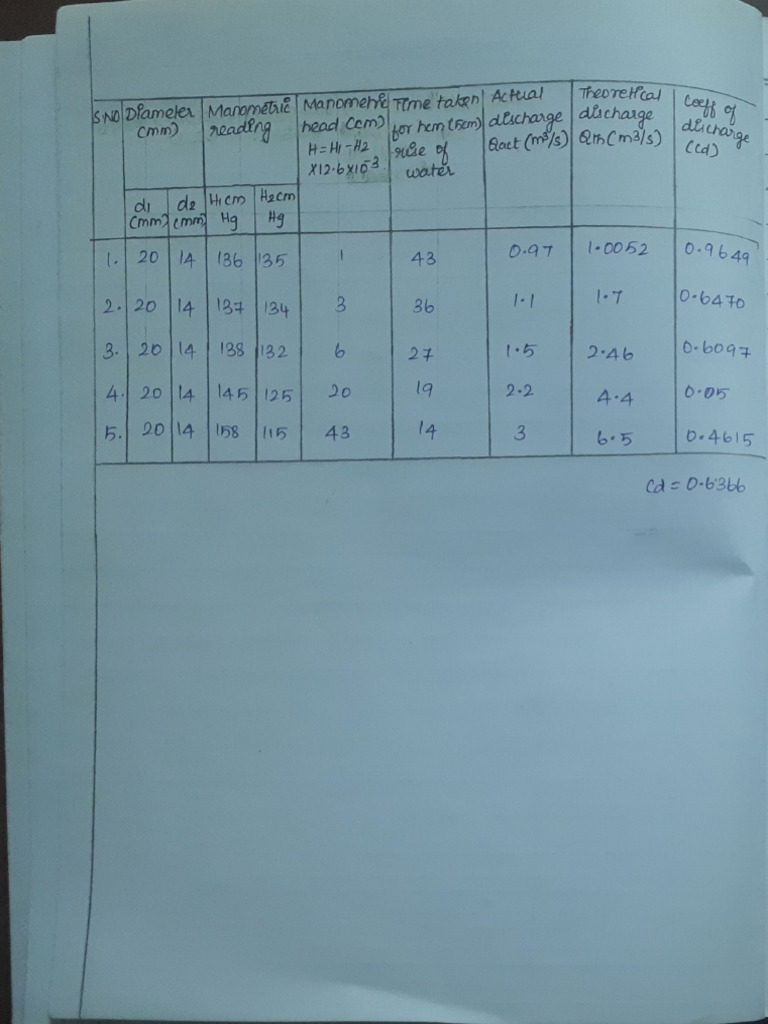 S.NO Diameter (mm) Manometric reading Manometric head (cm) H=H1-H2 X12.6X10-3 Time taken for hcm (5cm) rise of water Actual discharge Qact (m3/s) Theoretical discharge Qth (m3/s) Coeff of discharge (Cd)
d1 (mm) d2 (mm) H1cm Hg H2cm Hg
1. 20 14 136 135 1 43 0.97 1.0052 0.9649
2. 20 14 137 134 3 36 1.1 1.7 0.6470
3. 20 14 138 132 6 27 1.5 2.46 0.6097
4. 20 14 145 125 20 19 2.2 4.4 0.05
5. 20 14 158 115 43 14 3 6.5 0.4615
Cd = 0.6366